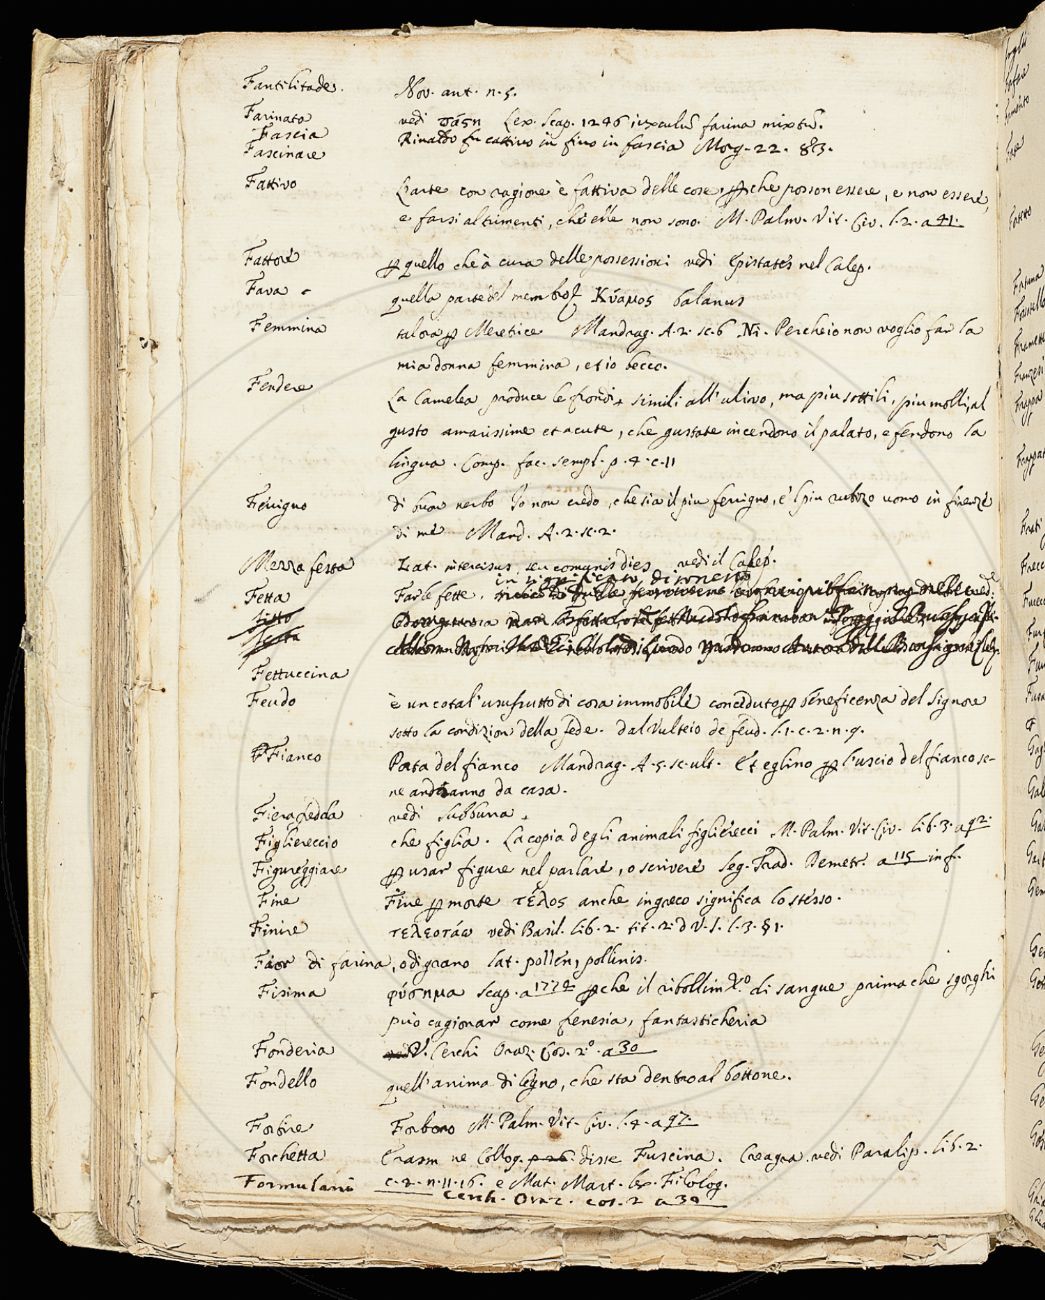 Fantilitade. Nov. ant. n. 5.
Farinato vedi πάςη Lex. Scap. 1246 farina
Fascia Rinaldo fu cattivo in fino in fascia Morg. 22. 83.
Fascinare
Fattivo L'arte con ragione è fattiva delle cose, ꝑche posson essere, e non essere,
e farsi altrimenti, ch'elle non sono. M. Palm. Vit. Civ. l. 2. a 41.
Fattore ꝑ quello che à cura delle possessioni vedi Epistates nel Calep.
Fava quella parte del Κύαμος balanus
Femmina talora ꝑ Meretrice Mandrag. A. 2. sc. 6 Ni. Perch'io non voglio far la
mia donna femmina, et io becco.
Fendere La Camelea produce le frondi simili all'ulivo, ma piu sottili, piu molli, al
gusto amarissime et acute, che gustate incendono il palato, e fendono la
lingua. Comp. fac. sempl. p. 4. c. 11
Ferrigno di buon nerbo Io non credo, che sia il piu ferrigno, e 'l piu rubizo uomo in firenze
di me Mand. A. 2. sc. 2.
Mezza festa Lat. intercisus, seu comunis dies vedi il Calep.
Fetta Far le fette.
Fettuccina
Feudo è un cotal' usufrutto di cosa immobile conceduto ꝑ beneficenza del Signore
sotto la condizion della fede. dal Vulteio de feud. l. 1. c. 2. n. 9.
Fianco Porta del fianco Mandrag. A. 5. sc. ult. Et eglino ꝑ l'uscio del fianco se
ne andranno da casa.
Fiera fedda vedi Subburra
Figliereccio che figlia. La copia degli animali figlierecci M. Palm. Vit. Civ. lib. 3. a 92.
Figureggiare ꝑ usar figure nel parlare, o scrivere Seg. Trad. Demetr. a 115 in f.
Fine Fine ꝑ morte τέλος anche in greco significa lo stesso.
Finire vedi Basil. lib. 2. tit. 2. l. 3. § 1.
Fior di farina, o di grano lat. pollen, pollinis.
Fisima φύσημα Scap. a 1774 ꝑche il ribollim.to di sangue prima che sgorghi
può cagionar come frenesia, fantasticheria
Fonderia V. Cerchi Oraz. Cos. 2.o a 30
Fondello quell'anima di legno, che sta dentro al bottone.
Forbire M. Palm. Vit. Civ. l. 4. a 97.
Forchetta Erasm ne Colloq. disse Fuscina. Creagra. vedi Paralip. lib. 2.
c. 2. n. 11. 16. e Mat. Mart. lex. Filolog.
Formulario Cerch. Oraz. cos. 2 a 30